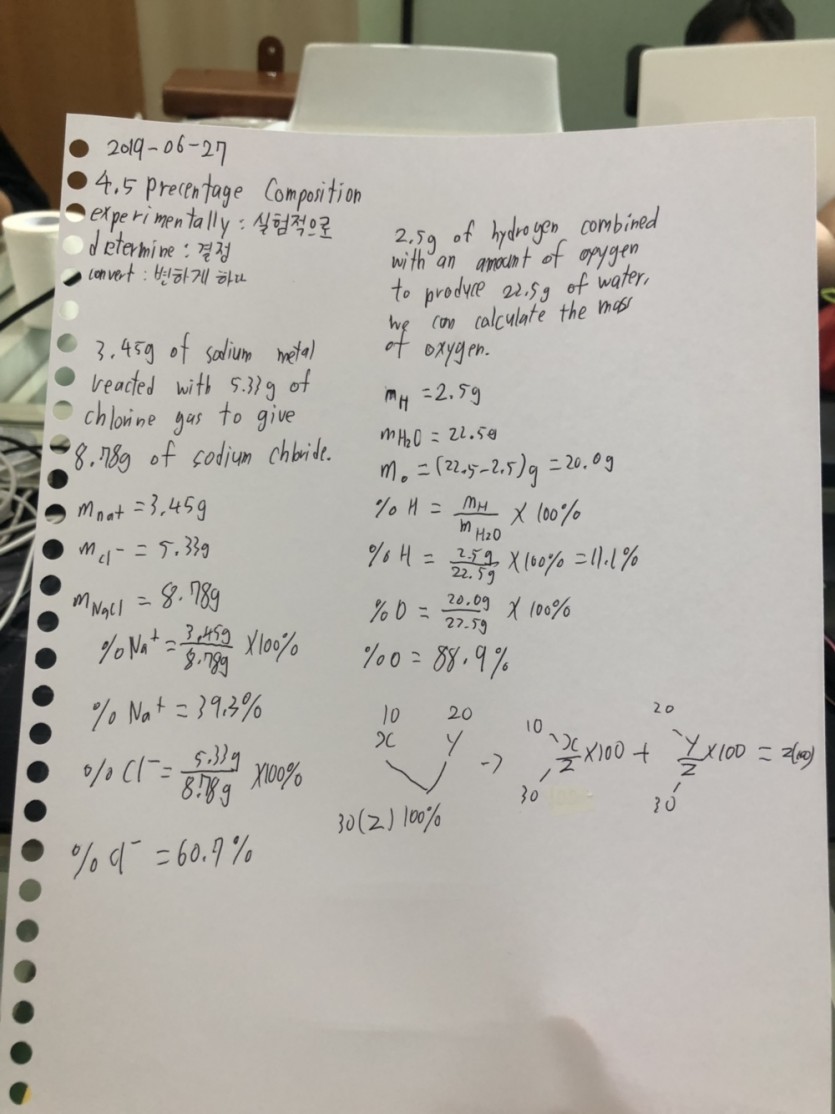 2019-06-27
4.5 precentage Composition
experimentally : 실험적으로
determine : 결정
convert : 변하게 하다
3.45g of sodium metal
reacted with 5.33g of
chlorine gas to give
8.78g of sodium chloride.
m_Na+ = 3.45g
m_Cl- = 5.33g
m_NaCl = 8.78g
% Na⁺ = 3.45g/8.78g X 100%
% Na⁺ = 39.3%
% Cl⁻ = 5.33g/8.78g X100%
% Cl⁻ = 60.7%
2.5g of hydrogen combined
with an amount of opygen
to produce 22.5g of water,
we can calculate the mass
of oxygen.
m_H = 2.5g
m_H2O = 22.5g
m_o = (22.5-2.5)g = 20.0g
% H = m_H/m_H2O X 100%
% H = 2.5g/22.5g X100% = 11.1%
% O = 20.0g/22.5g X 100%
% O = 88.9%
10 20
x y
30(z) 100%
→ x/z X100 + y/z X100 = z(100)
10 20
30 30